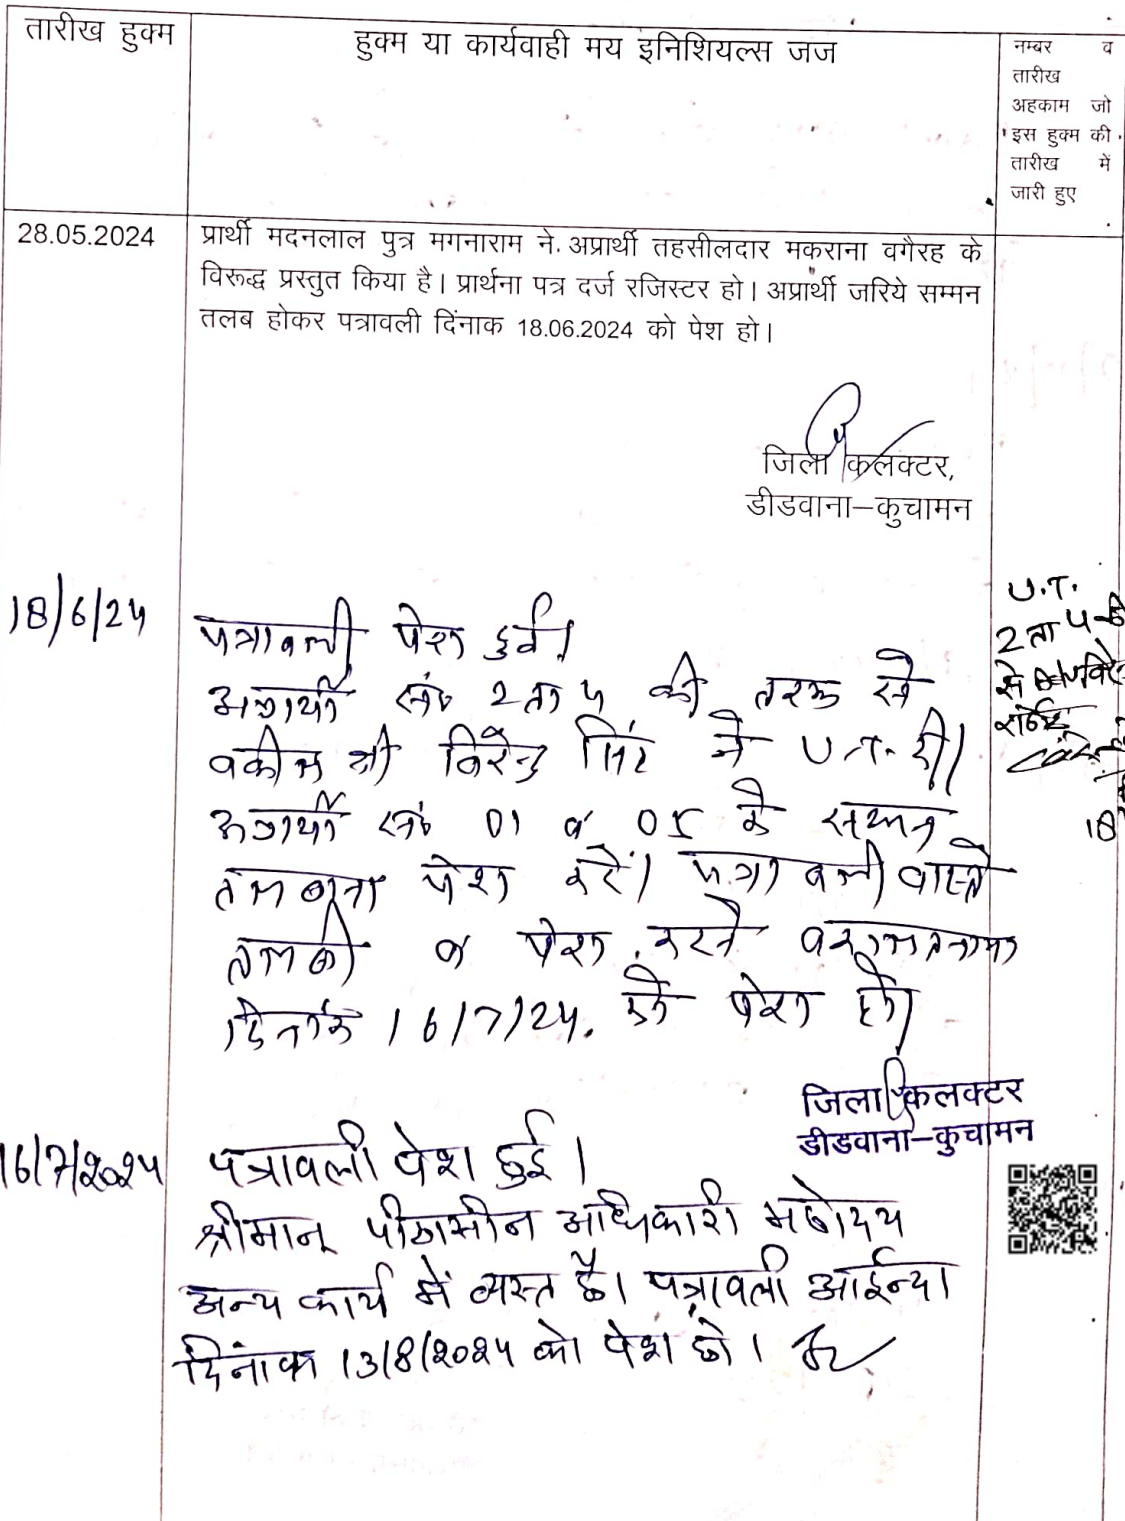 तारीख हुक्म
हुक्म या कार्यवाही मय इनिशियल्स जज
नम्बर व
तारीख
अहकाम जो
इस हुक्म की
तारीख में
जारी हुए
28.05.2024
प्रार्थी मदनलाल पुत्र मगनाराम ने. अप्रार्थी तहसीलदार मकराना वगैरह के
विरूद्ध प्रस्तुत किया है। प्रार्थना पत्र दर्ज रजिस्टर हो। अप्रार्थी जरिये सम्मन
तलब होकर पत्रावली दिंनाक 18.06.2024 को पेश हो।
जिला कलक्टर,
डीडवाना–कुचामन
18/6/24
पत्रावली पेश हुई।
अप्रार्थी सं० 2 ता 4 की तरफ से
वकील श्री विरेन्द्र सिंह ने U.T. दी।
अप्रार्थी सं० 01 व 05 के
तलबाना पेश करें। पत्रावली वास्ते
तलबी व पेश करने वकालतनामा
दिनांक 16/7/24. को पेश हो।
U.T.
2 ता 4 की
से
18
जिला कलक्टर
डीडवाना–कुचामन
16/7/2024
पत्रावली पेश हुई।
श्रीमान् पीठासीन अधिकारी महोदय
अन्य कार्य में व्यस्त है। पत्रावली आईन्दा
दिनांक 13/8/2024 को पेश हो।